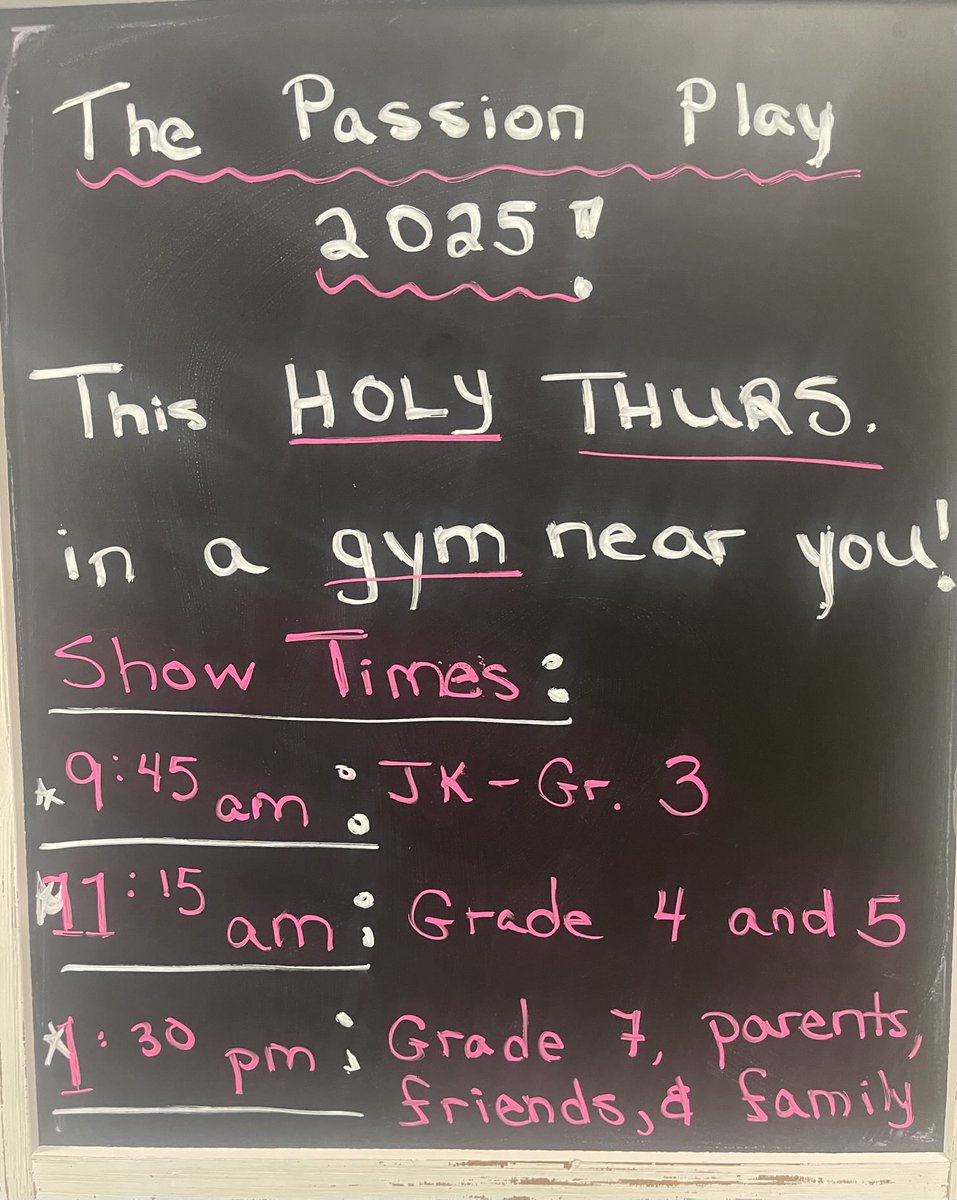 The Passion Play
2025!
This HOLY THURS.
in a gym near you!
Show Times:
* 9:45 am : JK - Gr. 3
* 11:15 am : Grade 4 and 5
* 1:30 pm : Grade 7, parents,
friends, & family